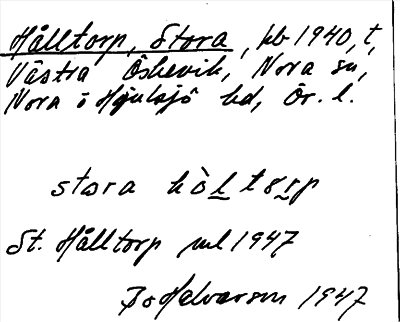 Hålltorp, Stora, kb 1940, t,
Västra Öskevik, Nora sn,
Nora o Hjulsjö hd, Ör. l.
stora hòltorp
St. Hålltorp ml 1947
Bo Halvarson 1947